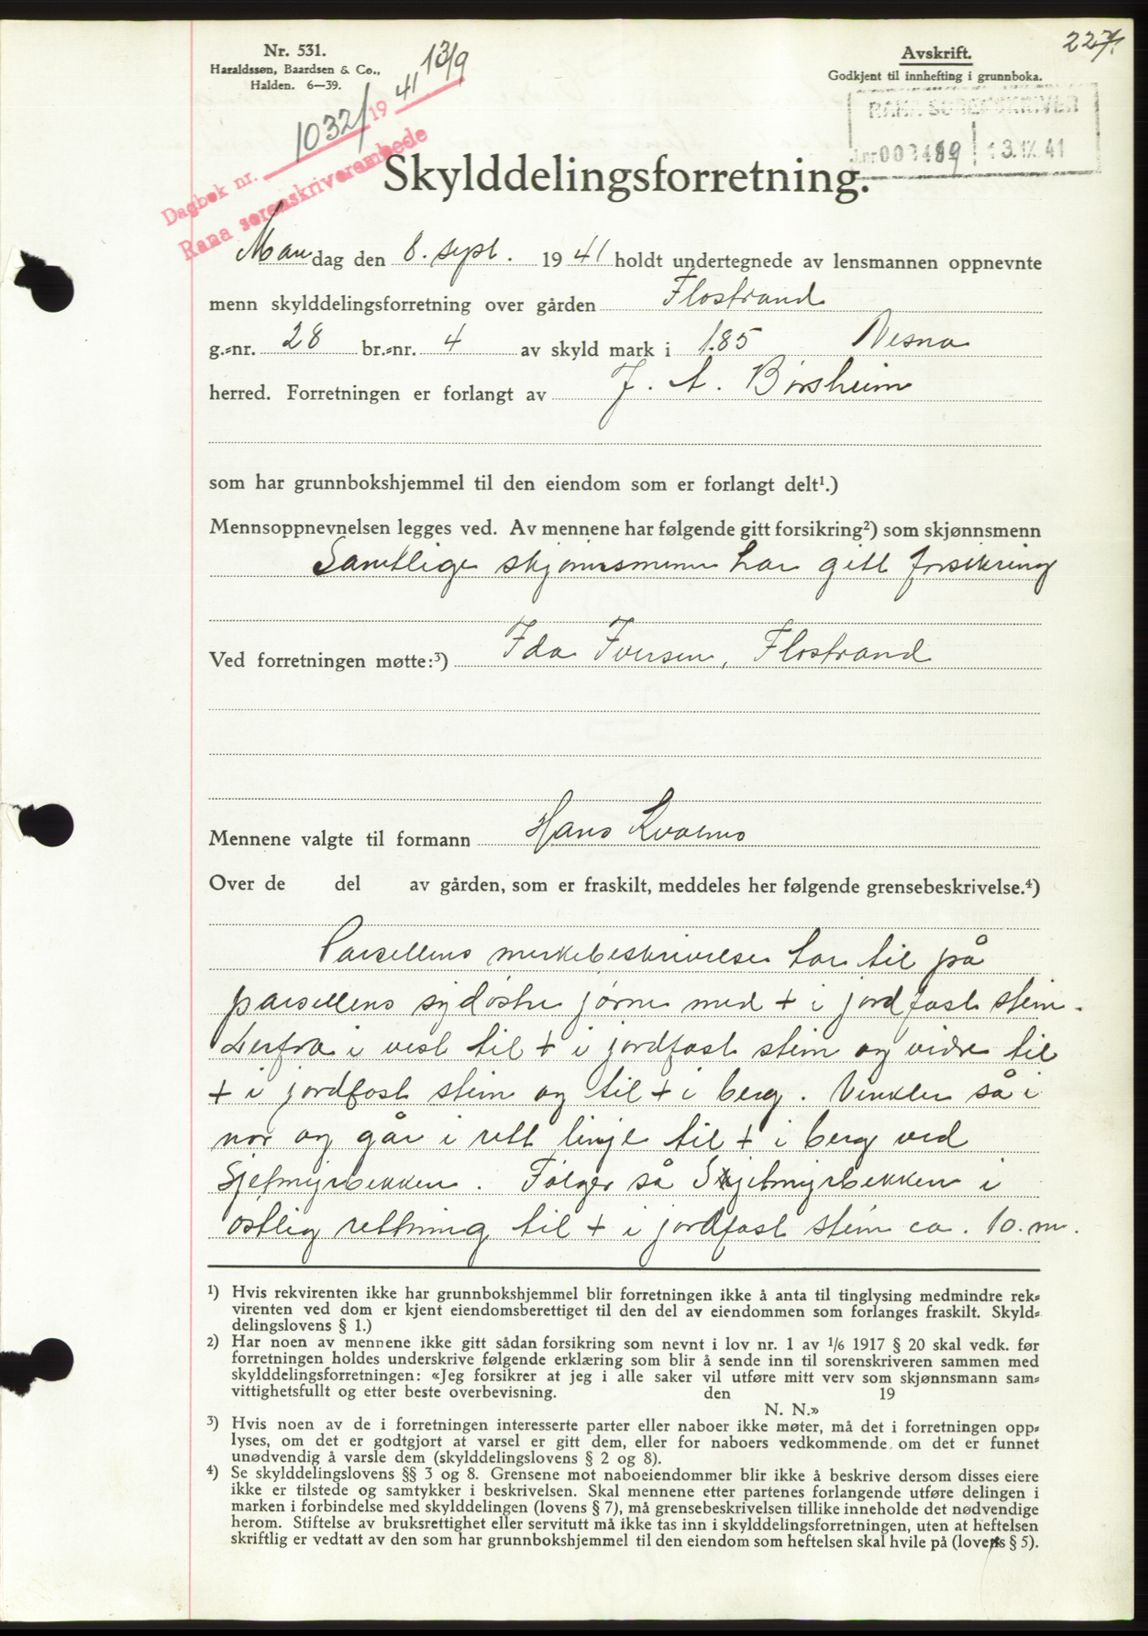 Nr. 531.
Haraldssøn, Baardsen & Co.,
Halden. 6—39.
Avskrift.
Godkjent til innhefting i grunnboka.
RANA SORENSKRIVER
J.nr 003489 13.IX.41
Dagbok nr. 1032/ 19 41 13/9
Rana sorenskriverembede
Skylddelingsforretning.
Mandag den 8. sept. 19 41 holdt undertegnede av lensmannen oppnevnte
menn skylddelingsforretning over gården Flostrand
g.-nr. 28 br.-nr. 4 av skyld mark i 1.85 Nesna
herred. Forretningen er forlangt av J. A. Børsheim
som har grunnbokshjemmel til den eiendom som er forlangt delt¹.)
Mennsoppnevnelsen legges ved. Av mennene har følgende gitt forsikring²) som skjønnsmenn
Samtlige skjønnsmenn har gitt forsikring
Ved forretningen møtte:³) Ida Iversen, Flostrand
Mennene valgte til formann Hans Kvarnes
Over de del av gården, som er fraskilt, meddeles her følgende grensebeskrivelse.⁴)
Parsellens merkebeskrivelse tar til på
parsellens sydøstre jørne med + i jordfast stein.
Derfra i vest til + i jordfast stein og vidre til
+ i jordfast stein og til + i berg. Vinkler så i
nor og går i rett linje til + i berg ved
Sjetmyrbekken. Følger så Sjetmyrbekken i
østlig rettning til + i jordfast stein ca. 10. m.
¹) Hvis rekvirenten ikke har grunnbokshjemmel blir forretningen ikke å anta til tinglysing medmindre rek-
virenten ved dom er kjent eiendomsberettiget til den del av eiendommen som forlanges fraskilt. Skyld-
delingslovens § 1.)
²) Har noen av mennene ikke gitt sådan forsikring som nevnt i lov nr. 1 av 1/6 1917 § 20 skal vedk. før
forretningen holdes underskrive følgende erklæring som blir å sende inn til sorenskriveren sammen med
skylddelingsforretningen: «Jeg forsikrer at jeg i alle saker vil utføre mitt verv som skjønnsmann sam-
vittighetsfullt og etter beste overbevisning. den 19
N. N.»
³) Hvis noen av de i forretningen interesserte parter eller naboer ikke møter, må det i forretningen opp-
lyses, om det er godtgjort at varsel er gitt dem, eller for naboers vedkommende om det er funnet
unødvendig å varsle dem (skylddelingslovens § 2 og 8).
⁴) Se skylddelingslovens §§ 3 og 8. Grensene mot naboeiendommer blir ikke å beskrive dersom disses eiere
ikke er tilstede og samtykker i beskrivelsen. Skal mennene etter partenes forlangende utføre delingen i
marken i forbindelse med skylddelingen (lovens § 7), må grensebeskrivelsen tillike inneholde det nødvendige
herom. Stiftelse av bruksrettighet eller servitutt må ikke tas inn i skylddelingsforretningen, uten at heftelsen
skriftlig er vedtatt av den som har grunnbokshjemmel til den eiendom som heftelsen skal hvile på (lovens § 5).